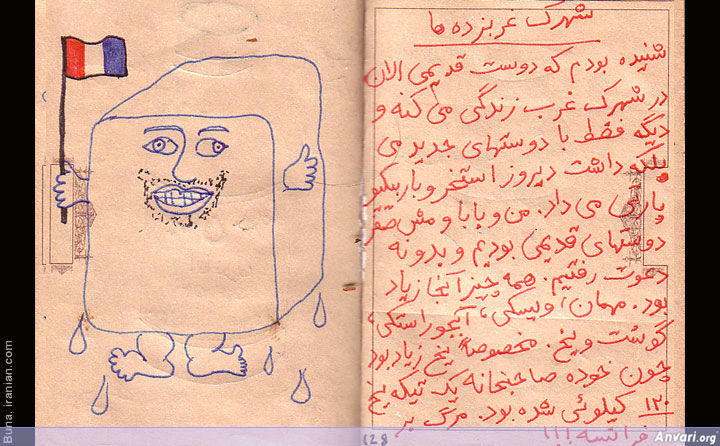 شهرک غربزده ها
شنیده بودم که دوست قدیمی الان
در شهرک غرب زندگی می کنه و
دیگه فقط با دوستهای جدید می
پلکه داشت دیروز استخر و باربیکیو
پارتی می داد. من و بابا و مش صفر
دوستهای قدیمی بودیم و بدونه
دعوت رفتیم. همه چیز آنجا زیاد
بود. مهمان، ویسکی، آبجو، استکی،
گوشت و یخ. مخصوصاً یخ زیاد بود
چون خوده صاحبخانه یک تیکه یخ
۱۲۰ کیلوئی شده بود. مرگ بر
فرانسه!!!
128
Buna, iranian.com
Anvari.org